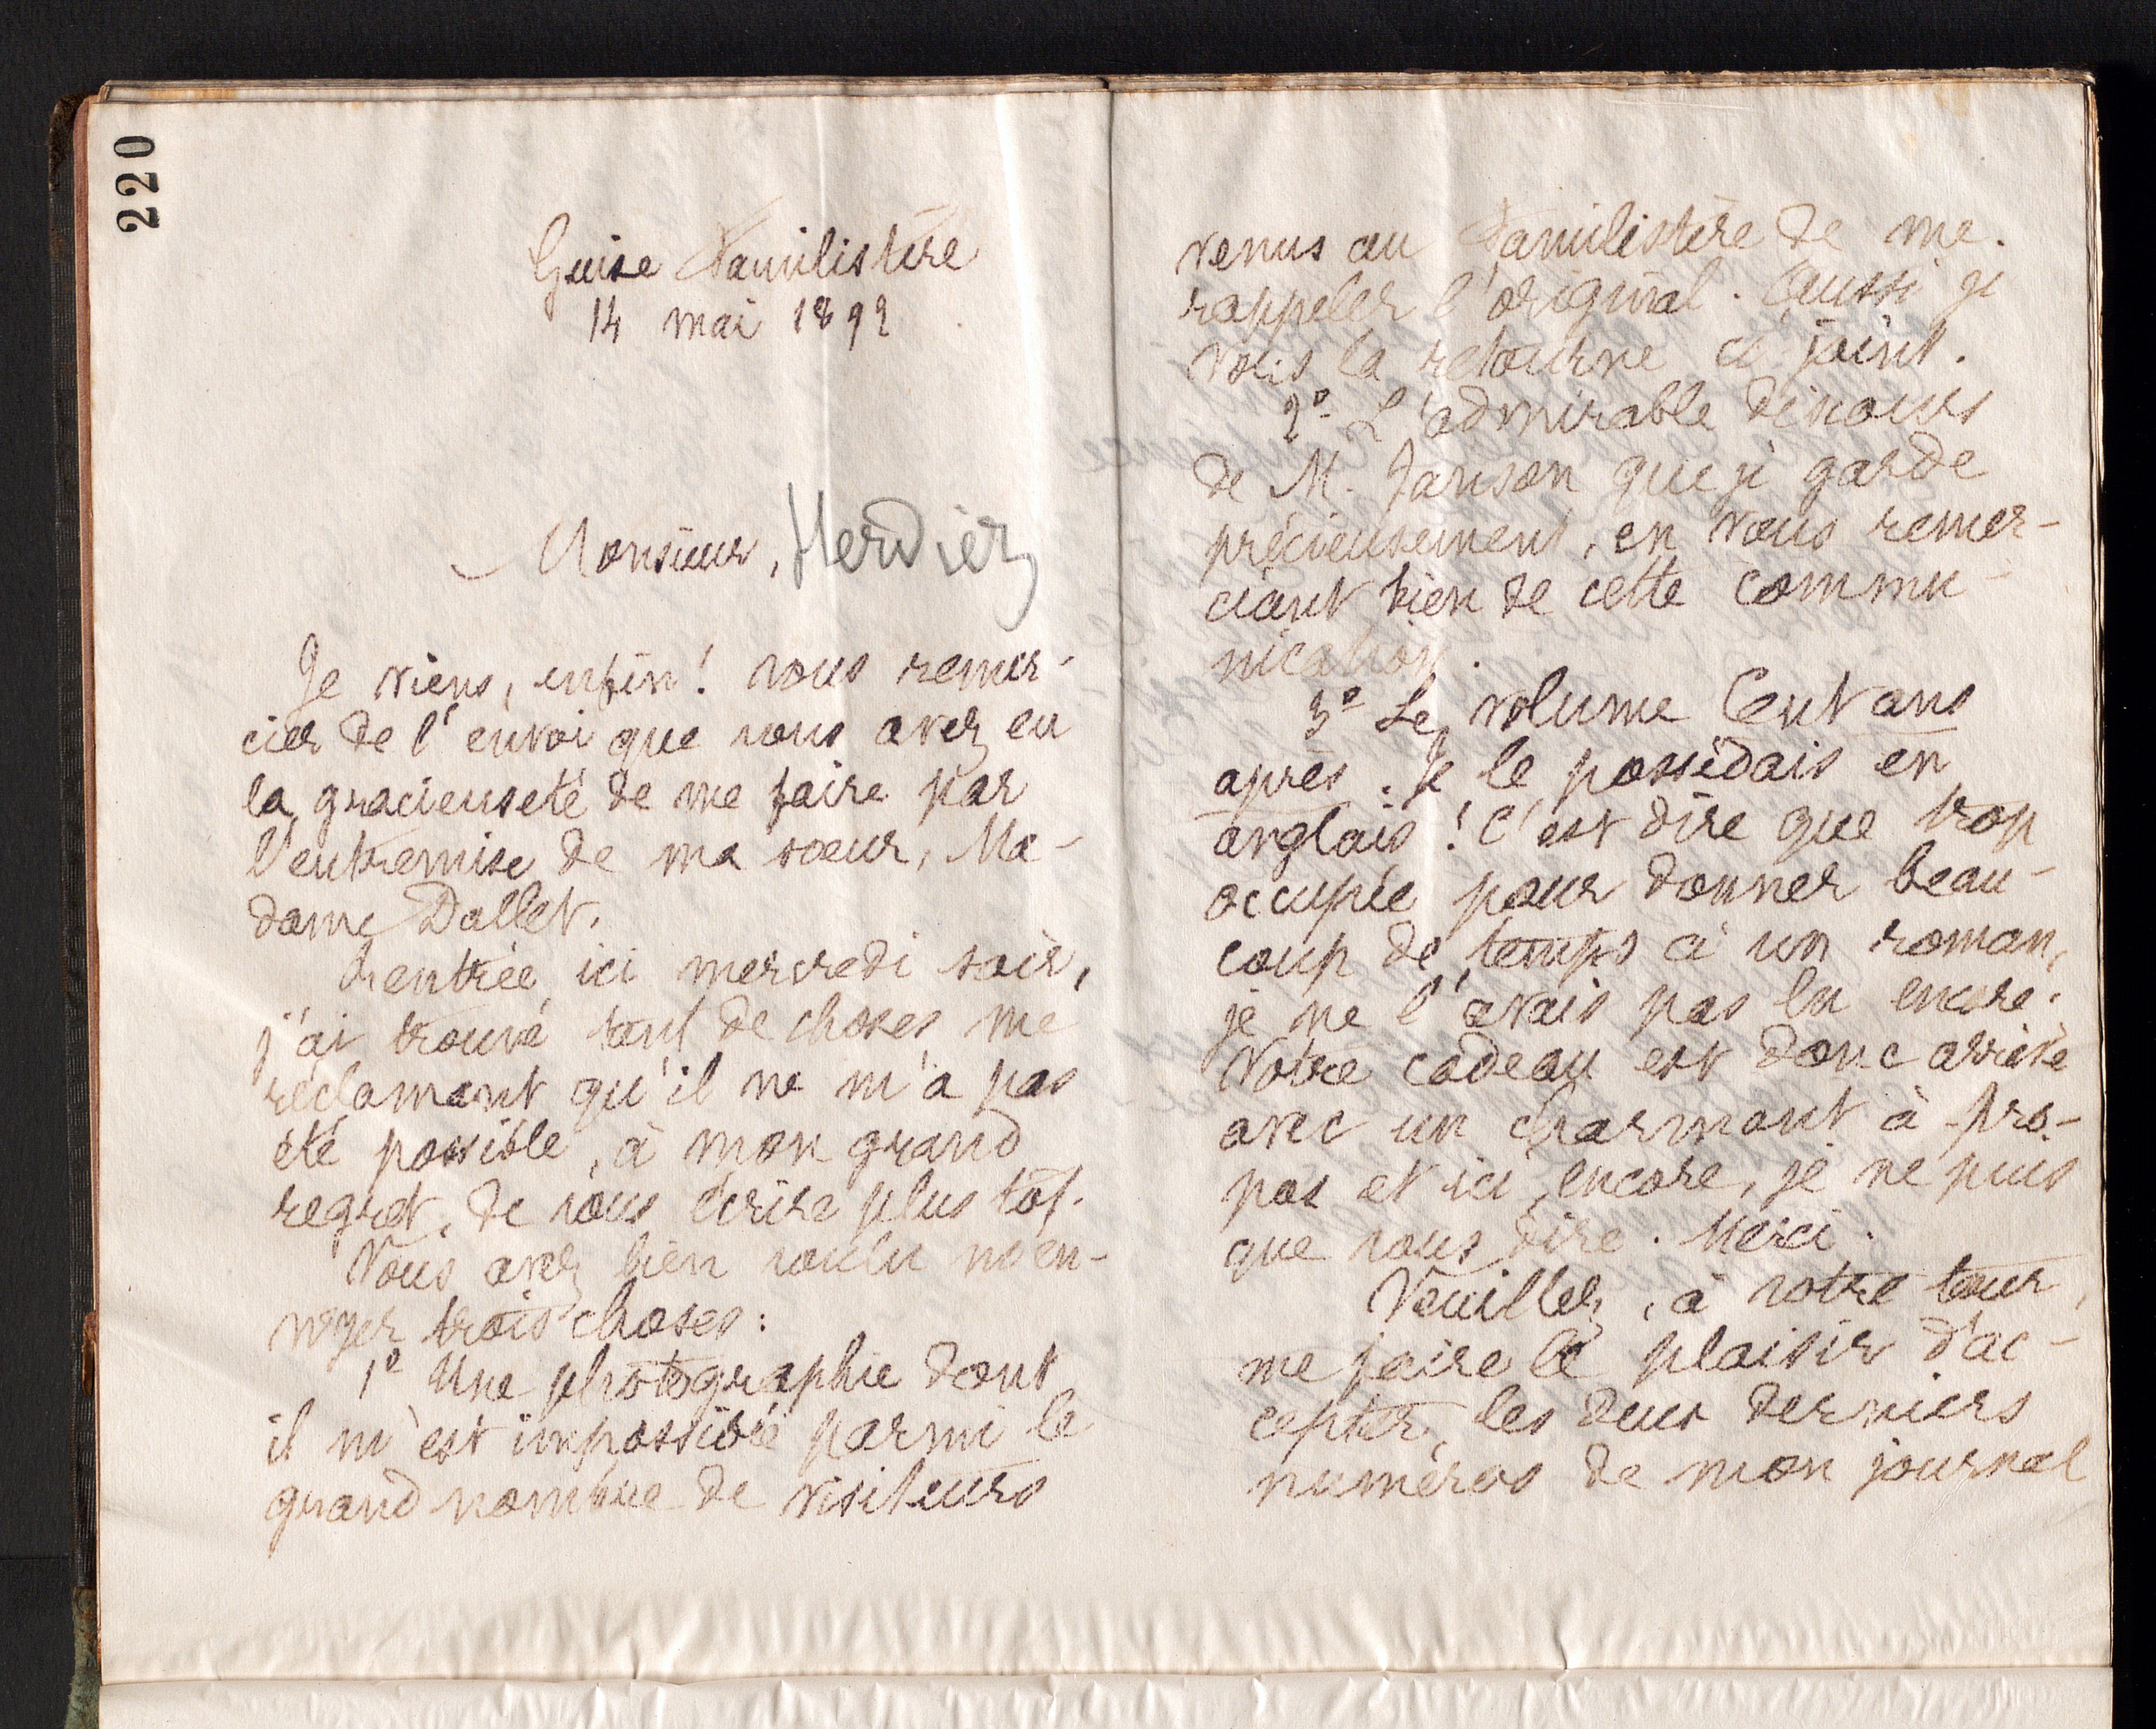 220
Guise Familistère
14 mai 1892
Monsieur, Herdiez
Je viens, enfin ! vous remer-
cier de l'envoi que vous avez eu
la gracieuseté de me faire par
l'entremise de ma sœur, Ma-
dame Dallet.
Rentrée ici mercredi soir,
j'ai trouvé tant de choses me
réclamant qu'il ne m'a pas
été possible, à mon grand
regret, de vous écrire plus tôt.
Vous avez bien voulu m'en-
voyer trois choses :
1° Une photographie dont
il m'est impossible parmi le
grand nombre de visiteurs
venus au Familistère de me
rappeler l'original. Aussi je
vous la retourne ci-joint.
2° L'admirable discours
de M. Janson que je garde
précieusement, en vous remer-
ciant bien de cette commu-
nication.
3° Le volume Cent ans
après. Je le possédais en
anglais ! C'est dire que trop
occupée pour donner beau-
coup de temps à un roman,
je ne l'avais pas lu encore.
Votre cadeau est donc arrivé
avec un charmant à pro-
pos et ici, encore, je ne puis
que vous dire. Merci.
Veuillez, à votre tour,
me faire le plaisir d'ac-
cepter, les deux derniers
numéros de mon journal